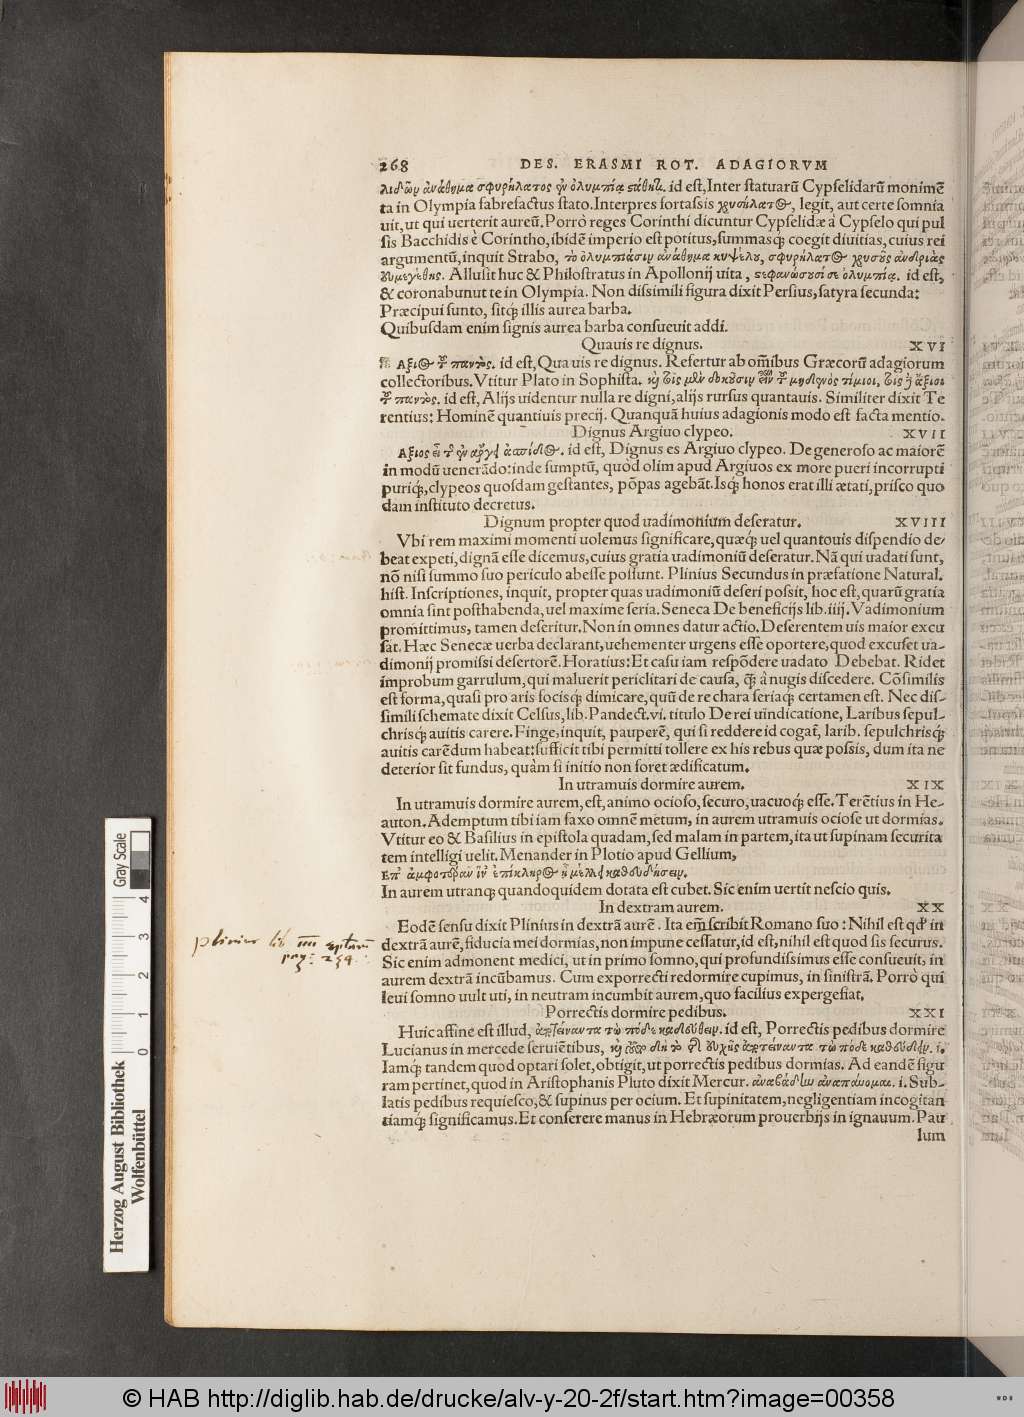 268 DES. ERASMI ROT. ADAGIORVM
id est, Inter statuarū Cypselidarū monimē
ta in Olympia fabrefactus stato. Interpres fortassis χρυσήλατος, legit, aut certe somnia
uit, ut qui uerterit aureū. Porrò reges Corinthi dicuntur Cypselidæ à Cypselo qui pul
sis Bacchidis è Corintho, ibidē imperio est potitus, summasq́; coegit diuitias, cuius rei
argumentū, inquit Strabo,
Allusit huc & Philostratus in Apollonij uita, id est,
& coronabunut te in Olympia. Non dissimili figura dixit Persius, satyra secunda:
Præcipui sunto, sitq́; illis aurea barba.
Quibusdam enim signis aurea barba consueuit addi.
Quauis re dignus. XVI
id est, Qua uis re dignus. Refertur ab om̄ibus Græcorū adagiorum
collectoribus. Vtitur Plato in Sophista.
id est, Alijs uidentur nulla re digni, alijs rursus quantauis. Similiter dixit Te
rentius: Hominē quantiuis precij. Quanquā huius adagionis modo est facta mentio.
Dignus Argiuo clypeo. XVII
id est, Dignus es Argiuo clypeo. De generoso ac maiorē
in modū uenerādo: inde sumptū, quòd olim apud Argiuos ex more pueri incorrupti
puriq́;, clypeos quosdam gestantes, pōpas agebāt. Isq́; honos erat illi ætati, prisco quo
dam instituto decretus.
Dignum propter quod uadimonium deseratur. XVIII
Vbi rem maximi momenti uolemus significare, quæq́; uel quantouis dispendio de-
beat expeti, dignā esse dicemus, cuius gratia uadimoniū deseratur. Nā qui uadati sunt,
nō nisi summo suo periculo abesse possunt. Plinius Secundus in præfatione Natural.
hist. Inscriptiones, inquit, propter quas uadimoniū deseri possit, hoc est, quarū gratia
omnia sint posthabenda, uel maxime seria. Seneca De beneficijs lib. iiij. Vadimonium
promittimus, tamen deseritur. Non in omnes datur actio. Deserentem uis maior excu
sat. Hæc Senecæ uerba declarant, uehementer urgens esse oportere, quod excuset ua-
dimonij promissi desertorē. Horatius: Et casu iam respōdere uadato Debebat. Ridet
improbum garrulum, qui maluerit periclitari de causa, q̄; à nugis discedere. Cōsimilis
est forma, quasi pro aris focisq́; dimicare, quū de re chara seriaq́; certamen est. Nec dis-
simili schemate dixit Celsus, lib. Pandect. vi. titulo De rei uindicatione, Laribus sepul-
chrisq́; auitis carere. Finge, inquit, pauperē, qui si reddere id cogat̄, larib. sepulchrisq́;
auitis carēdum habeat: sufficit tibi permitti tollere ex his rebus quæ possis, dum ita ne
deterior sit fundus, quàm si initio non foret ædificatum.
In utramuis dormire aurem. XIX
In utramuis dormire aurem, est, animo ocioso, securo, uacuoq́; esse. Terētius in He-
auton. Ademptum tibi iam faxo omnē metum, in aurem utramuis ociose ut dormias.
Vtitur eo & Basilius in epistola quadam, sed malam in partem, ita ut supinam securita
tem intelligi uelit. Menander in Plotio apud Gellium,
In aurem utranq; quandoquidem dotata est cubet. Sic enim uertit nescio quis.
In dextram aurem. XX
Eodē sensu dixit Plinius in dextrā aurē. Ita em̄ scribit Romano suo: Nihil est qd' in
plinius lib IIII epłarum
pag: 259
dextrā aurē, fiducia mei dormias, non impune cessatur, id est, nihil est quod sis securus.
Sic enim admonent medici, ut in primo somno, qui profundissimus esse consueuit, in
aurem dextrā incūbamus. Cum exporrecti redormire cupimus, in sinistrā. Porrò qui
leui somno uult uti, in neutram incumbit aurem, quo facilius expergefiat.
Porrectis dormire pedibus. XXI
Huic affine est illud, id est, Porrectis pedibus dormire
Lucianus in mercede seruiētibus, i.
Iamq́; tandem quod optari solet, obtigit, ut porrectis pedibus dormias. Ad eandē figu
ram pertinet, quod in Aristophanis Pluto dixit Mercur. ἀναβάδην ἀναπαύομαι. i. Sub-
latis pedibus requiesco, & supinus per ocium. Et supinitatem, negligentiam incogitan
tiamq́; significamus. Et conserere manus in Hebræorum prouerbijs in ignauum. Pau
lum
Gray Scale
4
3
2
1
0
Herzog August Bibliothek
Wolfenbüttel
© HAB http://diglib.hab.de/drucke/alv-y-20-2f/start.htm?image=00358